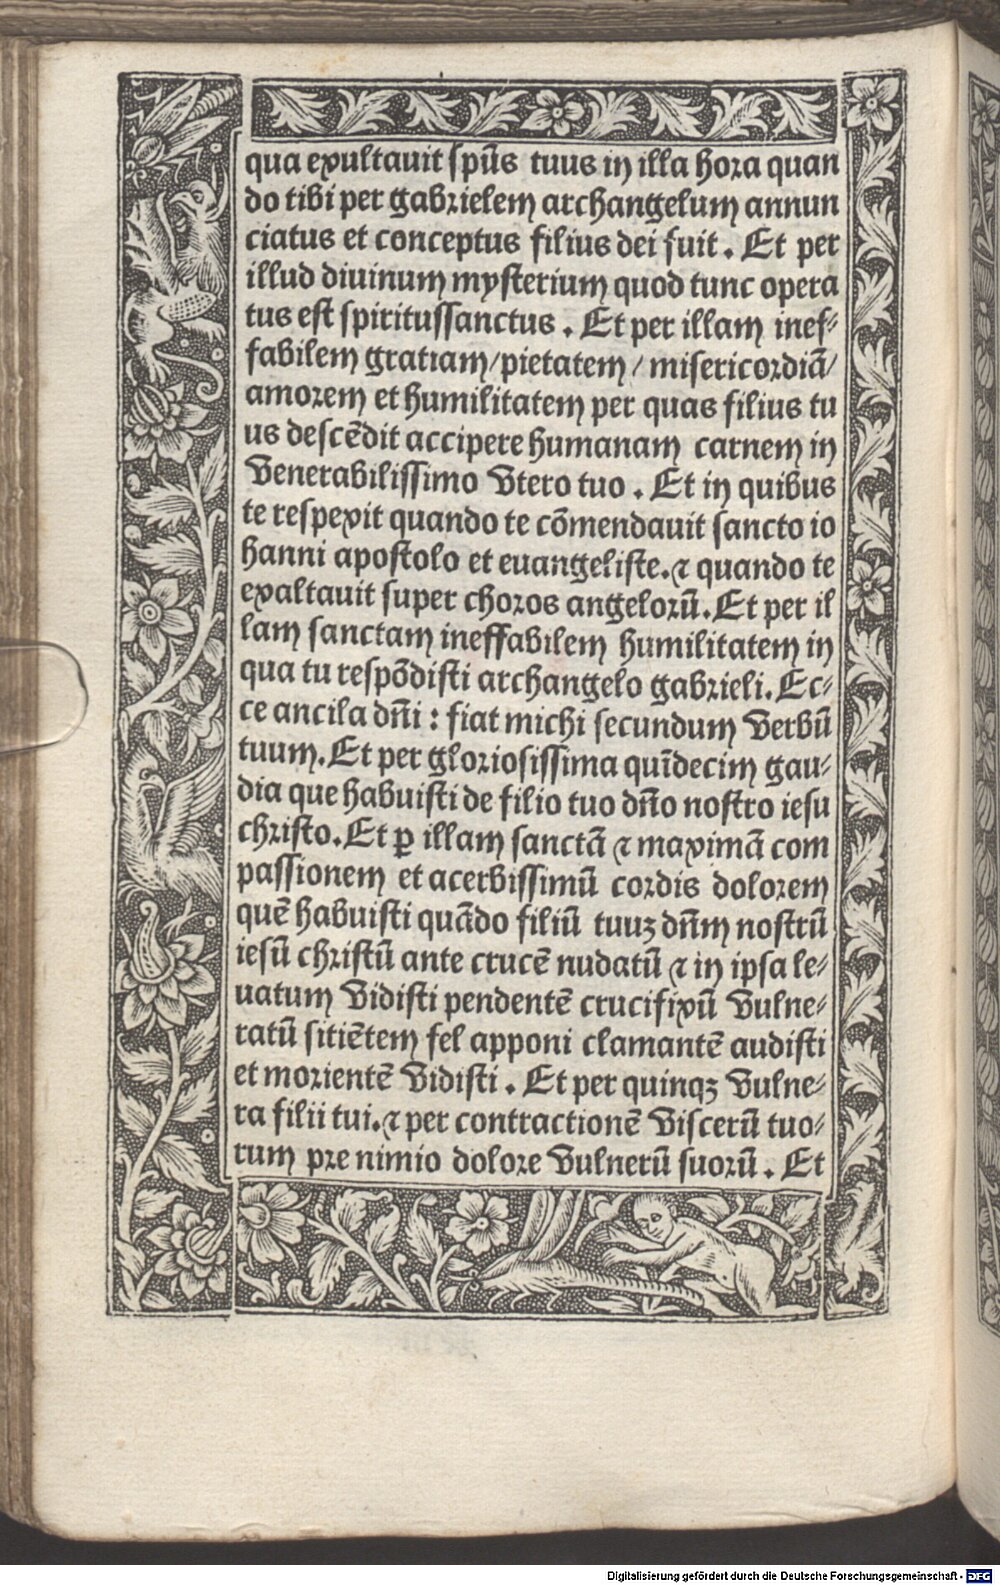 qua exultauit spūs tuus in illa hora quan
do tibi per gabrielem archangelum annun
ciatus et conceptus filius dei fuit. Et per
illud diuinum mysterium quod tunc opera
tus est spiritussanctus. Et per illam inef⸗
fabilem gratiam/pietatem/misericordiā/
amorem et humilitatem per quas filius tu
us descēdit accipere humanam carnem in
venerabilissimo vtero tuo. Et in quibus
te respexit quando te cōmendauit sancto io
hanni apostolo et euangeliste. ⁊ quando te
exaltauit super choros angelorū. Et per il
lam sanctam ineffabilem humilitatem in
qua tu respōdisti archangelo gabrieli. Ec⸗
ce ancila dn̄i: fiat michi secundum verbū
tuum. Et per gloriosissima quīdecim gau⸗
dia que habuisti de filio tuo dn̄o nostro iesu
christo. Et ꝑ illam sanctā ⁊ maximā com
passionem et acerbissimū cordis dolorem
quē habuisti quādo filiū tuuꝫ dn̄m nostrū
iesū christū ante crucē nudatū ⁊ in ipsa le⸗
uatum vidisti pendentē crucifixū vulne⸗
ratū sitiētem fel apponi clamantē audisti
et morientē vidisti. Et per quinqꝫ vulne⸗
ra filii tui. ⁊ per contractionē viscerū tuo⸗
rum pre nimio dolore vulnerū suorū. Et
Digitalisierung gefördert durch die Deutsche Forschungsgemeinschaft - DFG